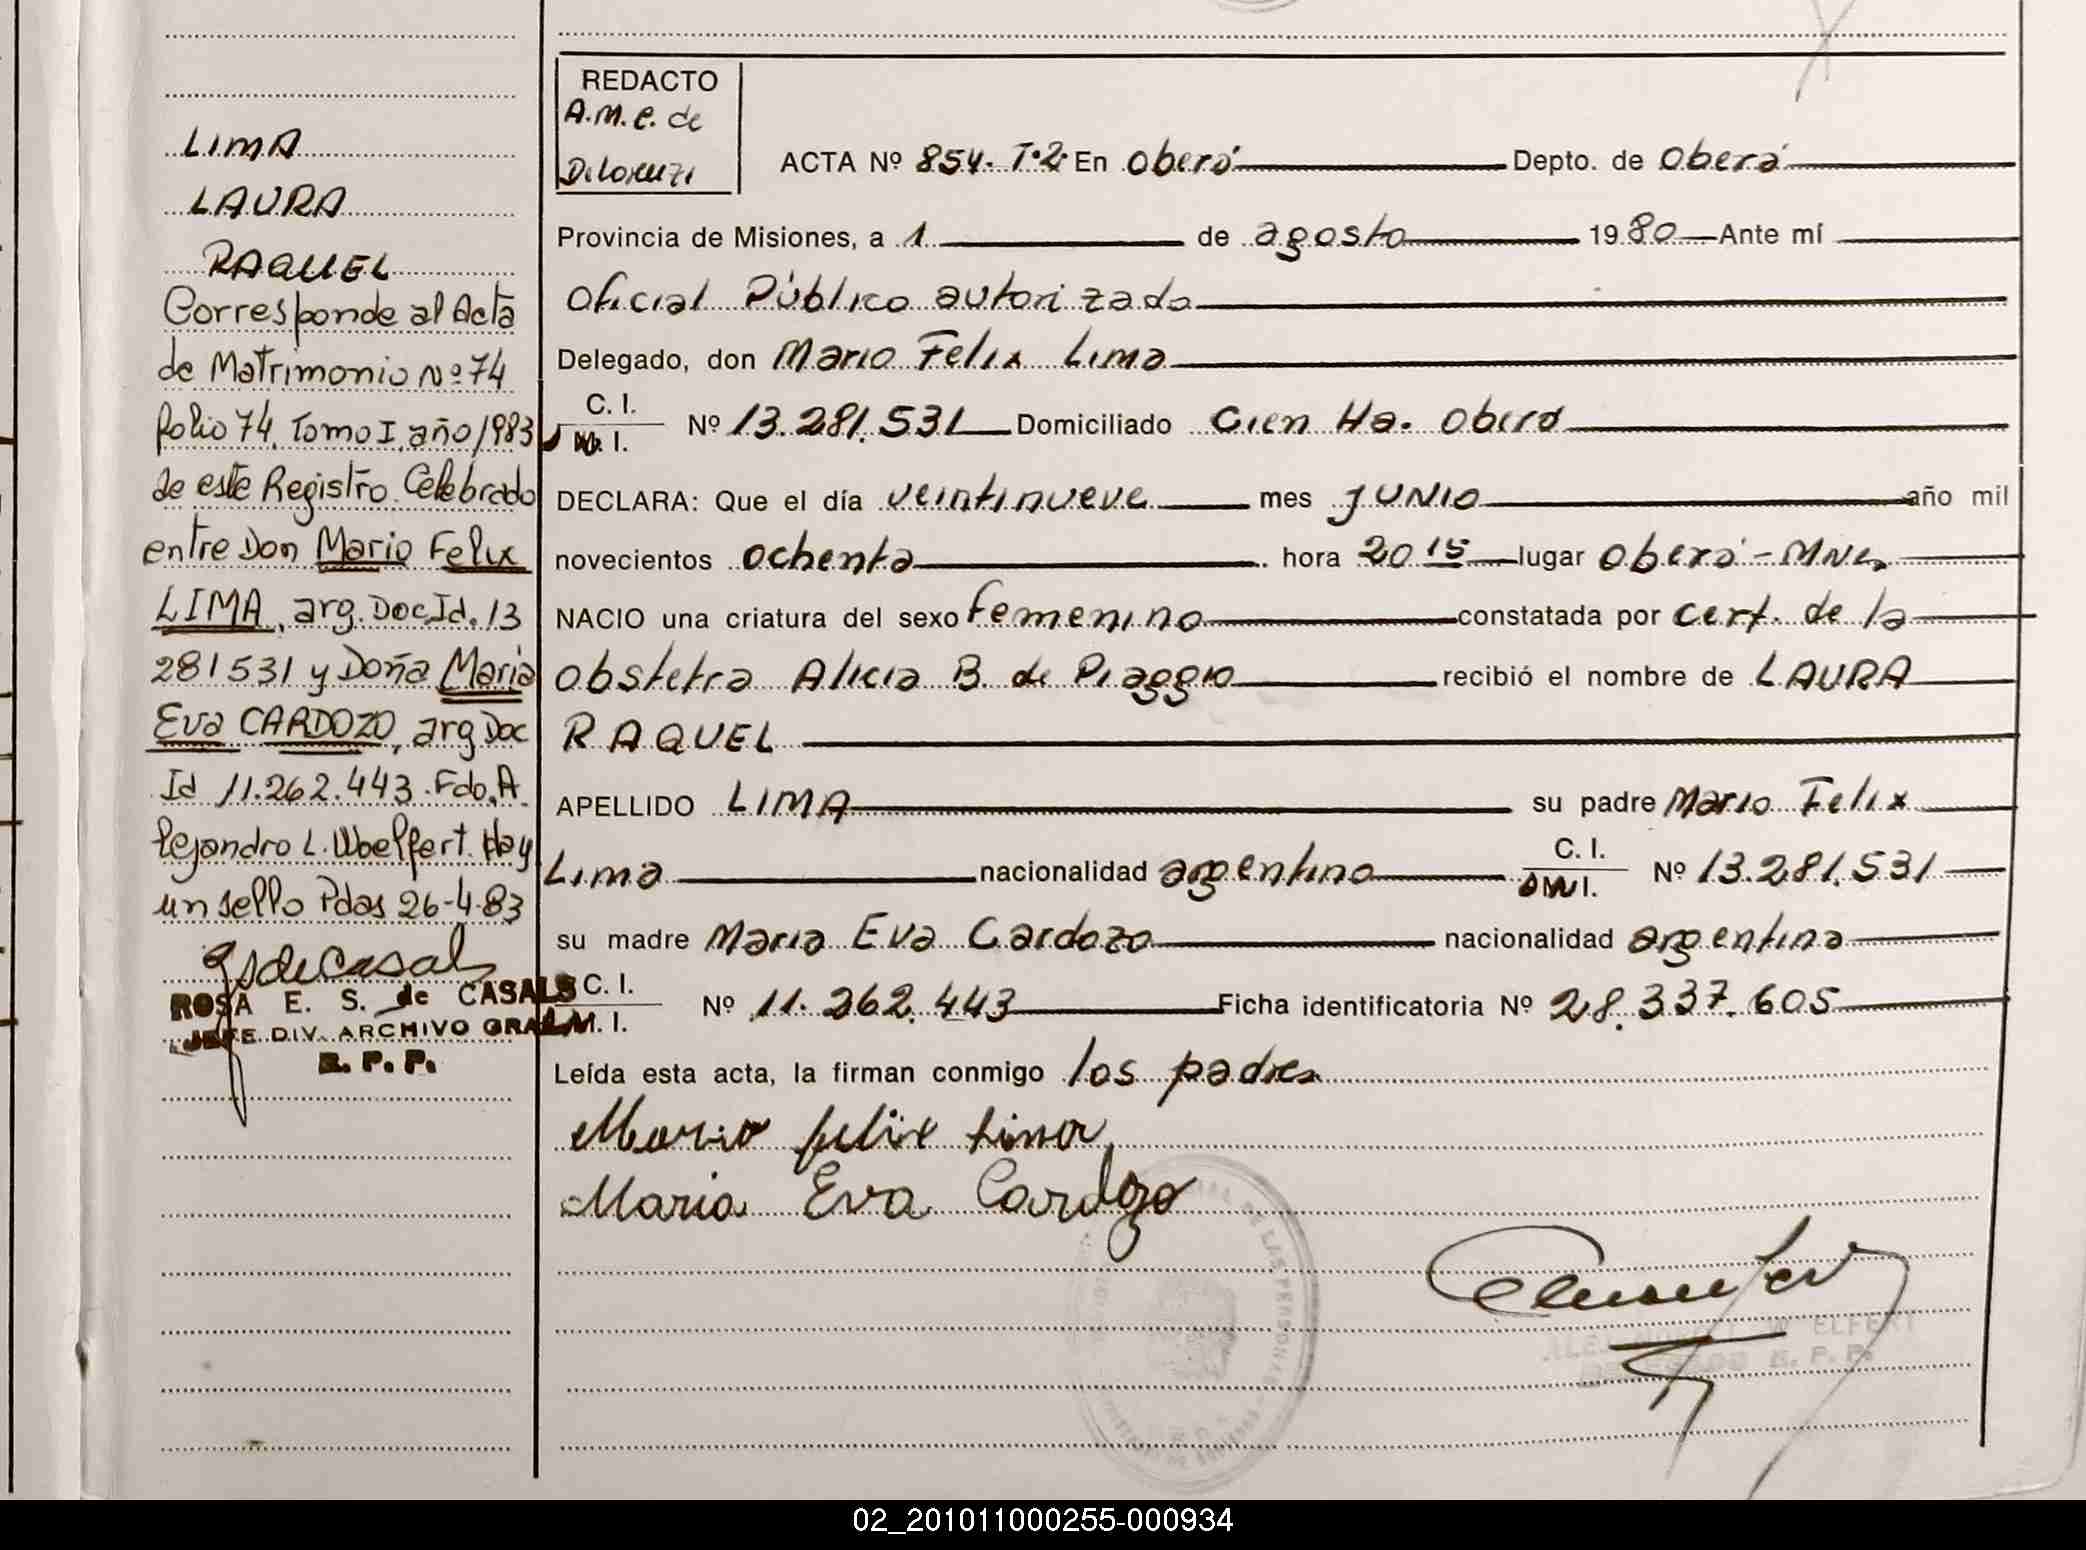 LIMA
LAURA
RAQUEL
Corresponde al Acta
de Matrimonio Nº 74
folio 74, Tomo I, año 1983
de este Registro. Celebrado
entre Don Mario Felix
LIMA, arg. Doc. Id. 13
281531 y Doña Maria
Eva CARDOZO, arg Doc
Id 11.262.443. Fdo. A
lejandro L. Woelfert. Hay
un sello Pdas 26-4-83
ROSA E. S. de CASALS
JEFE DIV. ARCHIVO GRAL.
R. P. P.
REDACTO
A.M.C. de
DeLorenzi
ACTA Nº 854. Tº2º En Oberá Depto. de Oberá
Provincia de Misiones, a 1 de agosto 1980 Ante mí
Oficial Público autorizado
Delegado, don Mario Felix Lima
C. I.
M. I. Nº 13.281.531 Domiciliado Cien Ha. Oberá
DECLARA: Que el día veintinueve mes JUNIO año mil
novecientos ochenta hora 20 15 lugar Oberá - Mnes
NACIO una criatura del sexo femenino constatada por cert. de la
obstetra Alicia B. de Piaggio recibió el nombre de LAURA
RAQUEL
APELLIDO LIMA su padre Mario Felix
Lima nacionalidad argentino C. I. Nº 13.281.531
su madre Maria Eva Cardozo nacionalidad argentina
C. I.
M. I. Nº 11.262.443 Ficha identificatoria Nº 28.337.605
Leída esta acta, la firman conmigo los padres
Mario felix Lima
Maria Eva Cardozo
02_201011000255-000934